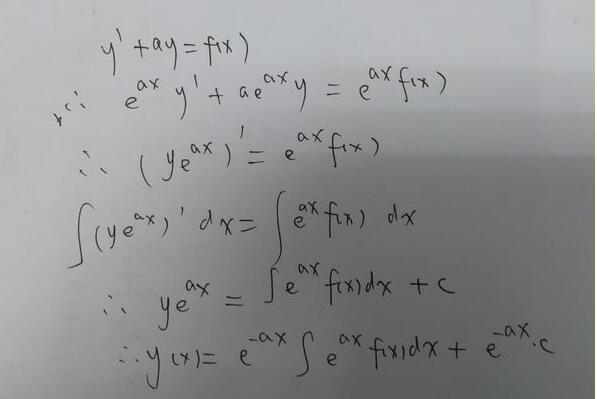 y' + ay = f(x)
∵ e^{ax} y' + ae^{ax} y = e^{ax} f(x)
∴ (ye^{ax})' = e^{ax} f(x)
∫(ye^{ax})' dx = ∫e^{ax} f(x) dx
∴ ye^{ax} = ∫e^{ax} f(x)dx + c
∴ y(x) = e^{-ax} ∫ e^{ax} f(x)dx + e^{-ax}·c